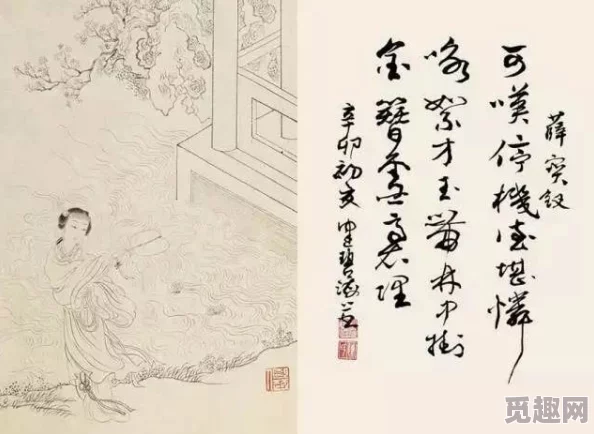 薛寶釵
可嘆停機德堪憐
咏絮才玉帶林中掛
金簪雪裏埋
辛卯初夏
觅趣网